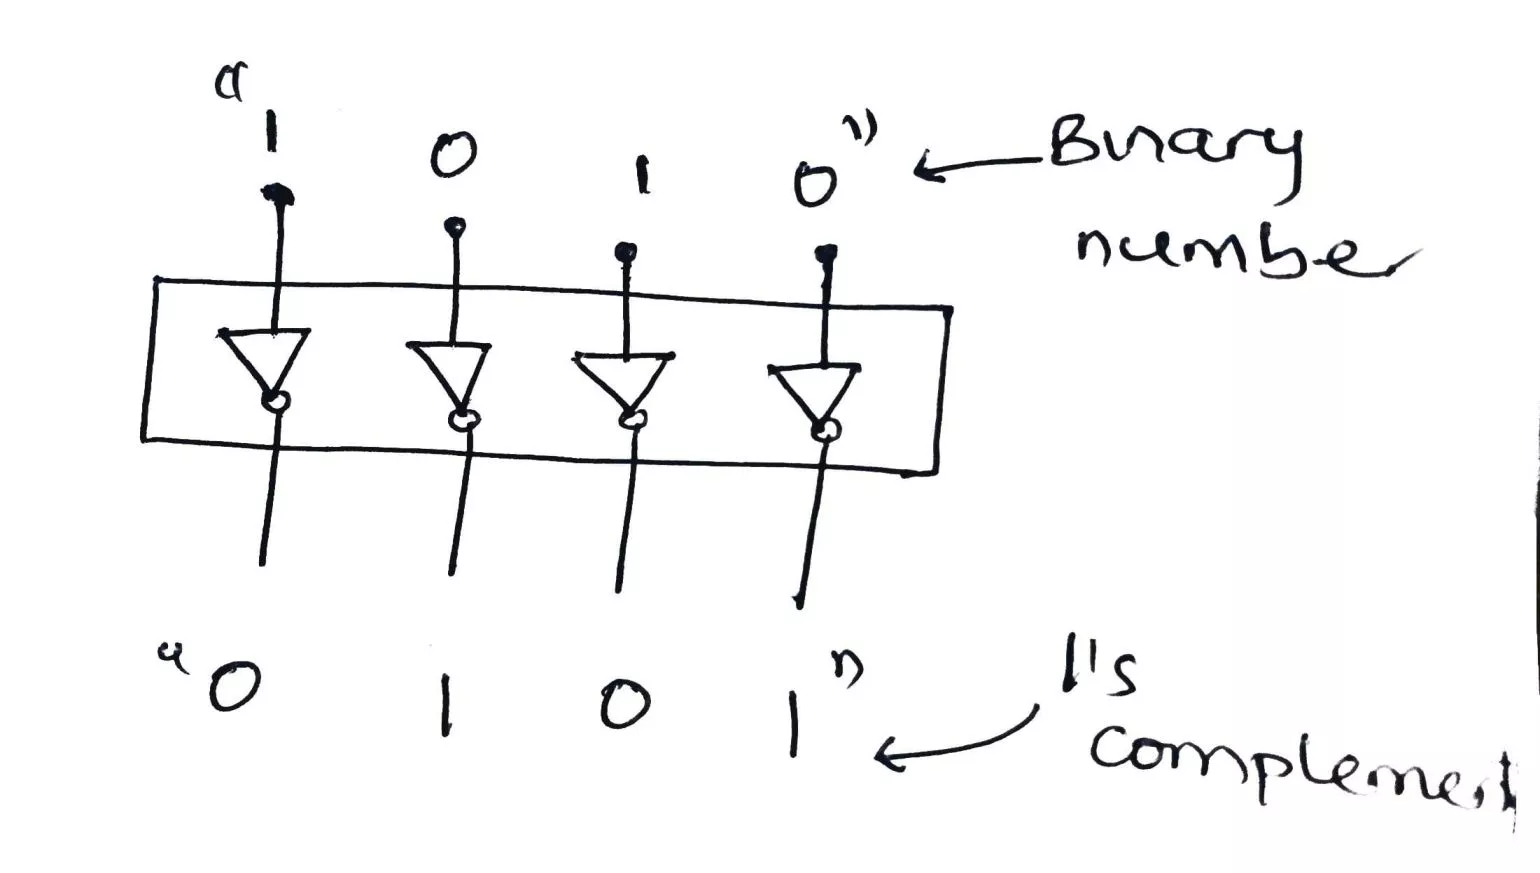 "1 0 1 0"
Binary
number
"0 1 0 1"
1's
complement